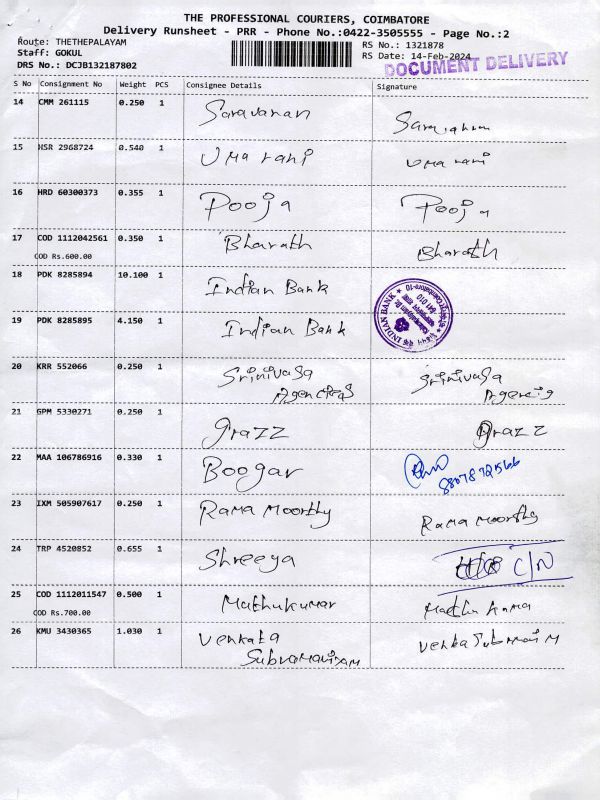 THE PROFESSIONAL COURIERS, COIMBATORE
Delivery Runsheet - PRR - Phone No.:0422-3505555 - Page No.:2
Route: THETHEPALAYAM
Staff: GOKUL
DRS No.: DCJB132187802
RS No.: 1321878
RS Date: 14-Feb-2024
DOCUMENT DELIVERY
S No Consignment No Weight PCS Consignee Details Signature
14 CMM 261115 0.250 1 Saravanan
15 HSR 2968724 0.540 1 Uma rani Uma rani
16 HRD 60300373 0.355 1 Pooja Pooja
17 COD 1112042561 0.350 1 Bharath Bharath
COD Rs.600.00
18 PDK 8285894 10.100 1 Indian Bank
INDIAN BANK
19 PDK 8285895 4.150 1 Indian Bank
20 KRR 552066 0.250 1 Srinivasa Srinivasa
Agencies
21 GPM 5330271 0.250 1 Grazz Grazz
22 MAA 106786916 0.330 1 Boogar
23 IXM 505907617 0.250 1 Rama Moorthy Rama Moorthy
24 TRP 4520852 0.655 1 Shreeya C/N
25 COD 1112011547 0.500 1 Mathukumar
COD Rs.700.00
26 KMU 3430365 1.030 1 Venkata
Subramaniyam